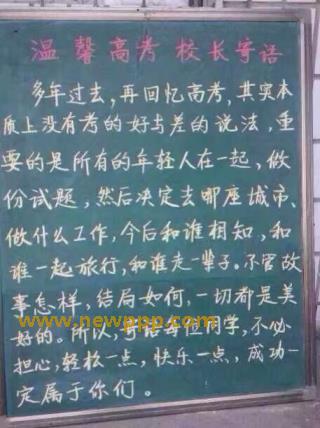 温馨高考 校长寄语
多年过去,再回忆高考,其实本
质上没有考的好与差的说法,重
要的是所有的年轻人在一起,做
份试题,然后决定去哪座城市、
做什么工作,今后和谁相知,和
谁一起旅行,和谁走一辈子。不管故
事怎样,结局如何,一切都是美
好的。所以,寄语每位同学,不必
担心,轻松一点,快乐一点,成功一
定属于你们。
www.newppp.com